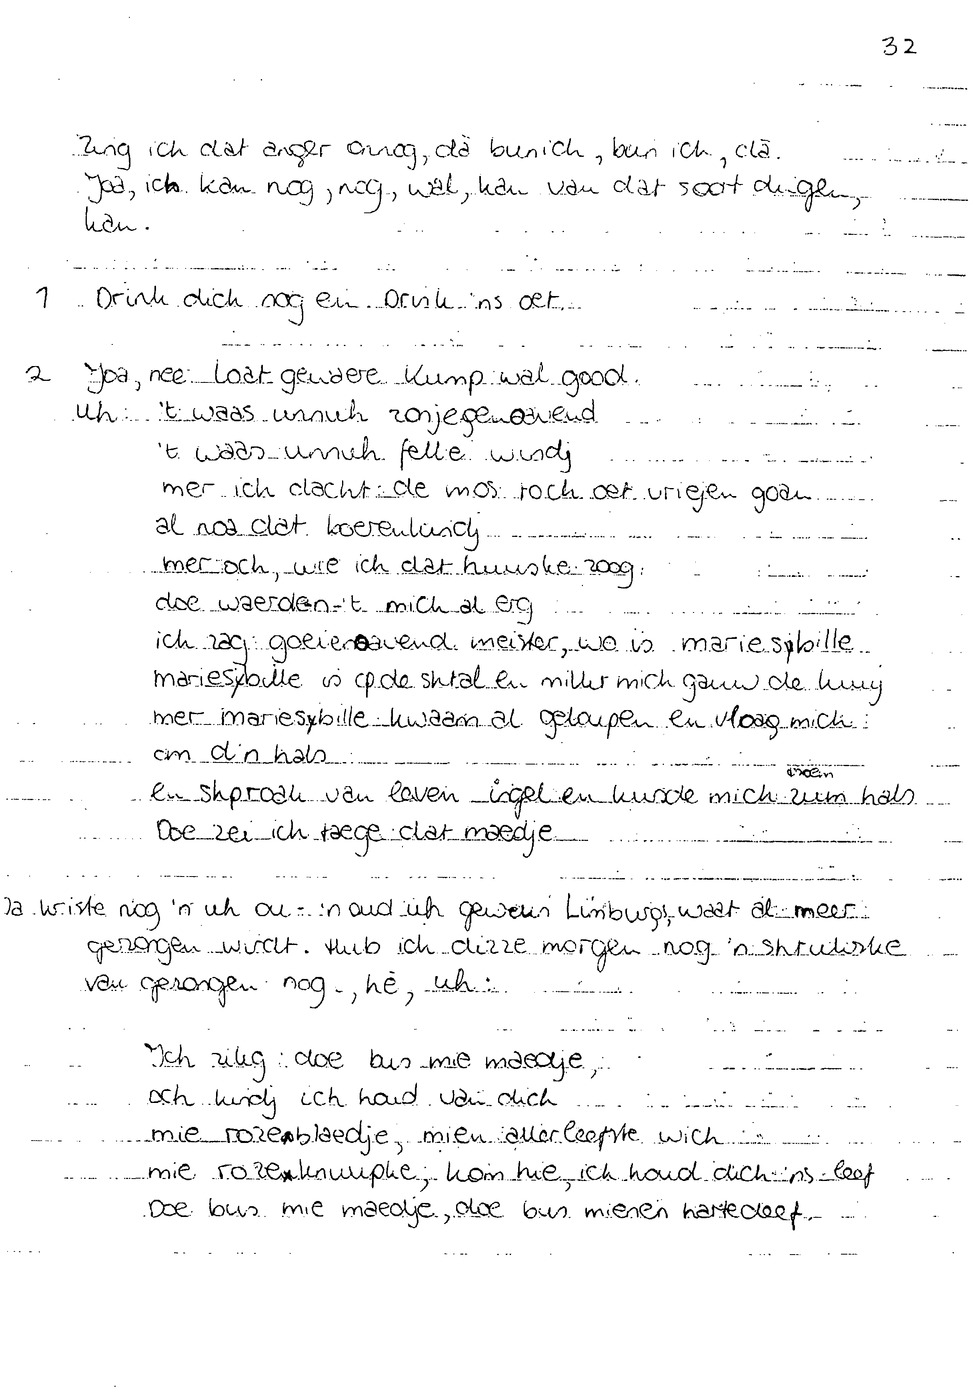 32
Zing ich dat anger onnog, dä bun ich, bun ich, dä.
Joa, ich kan nog, nog, wäl, kan van dat soort dingen,
kan.
1 Drink dich nog en Drink 'ns oet.
2 Joa, nee Loat gewaere Kump wal good.
Uh: 't waas unnuh zonjegenoavend
't waas unnuh felle windj
mer ich dacht: de mos toch oet vriejen goan
al noa dat boerenkindj
mer och, wie ich dat huuske zoog
doe waerden-'t mich al erg
ich zag: goeienoavend meister, wo is mariesybille
mariesybille is op de shtal en milkt mich gauw de kuuj
mer mariesybille kwaam al geloupen en vloog mich
om d'n hals
en shproak van leven ingel en kusde mich zum hals
Doe zei ich taege dat maedje
Ja kriste nog 'n uh ou- 'n oud uh gewoen Limburgs, waat al meer
gezongen wirdt. Hub ich dizze morgen nog 'n shtukske
van gezongen nog, hè, uh:
Ich zing: doe bus mie maedje,
och kindj ich houd van dich
mie rozenblaedje, mien allerleefste wich
mie rozeknuupke, kom hie, ich houd dich 'ns leef
Doe bus mie maedje, doe bus mienen hartedeef.